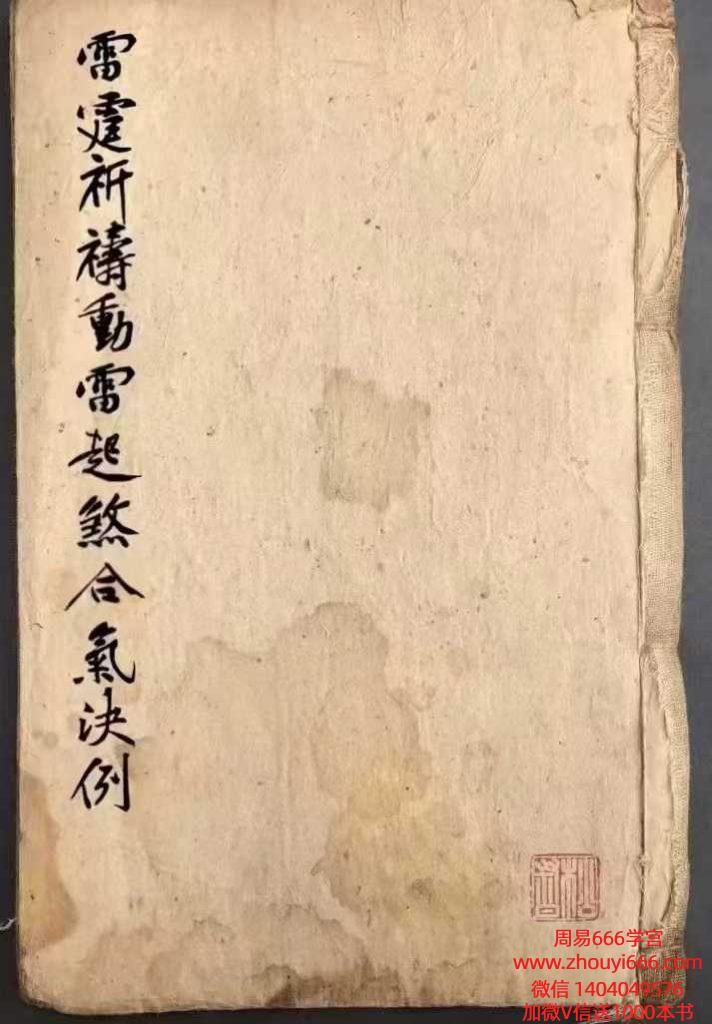 雷霆祈禱動雷起煞合氣決例
周易666学宫
www.zhouyi666.com
微信 1404049576
加微V信送1000本书